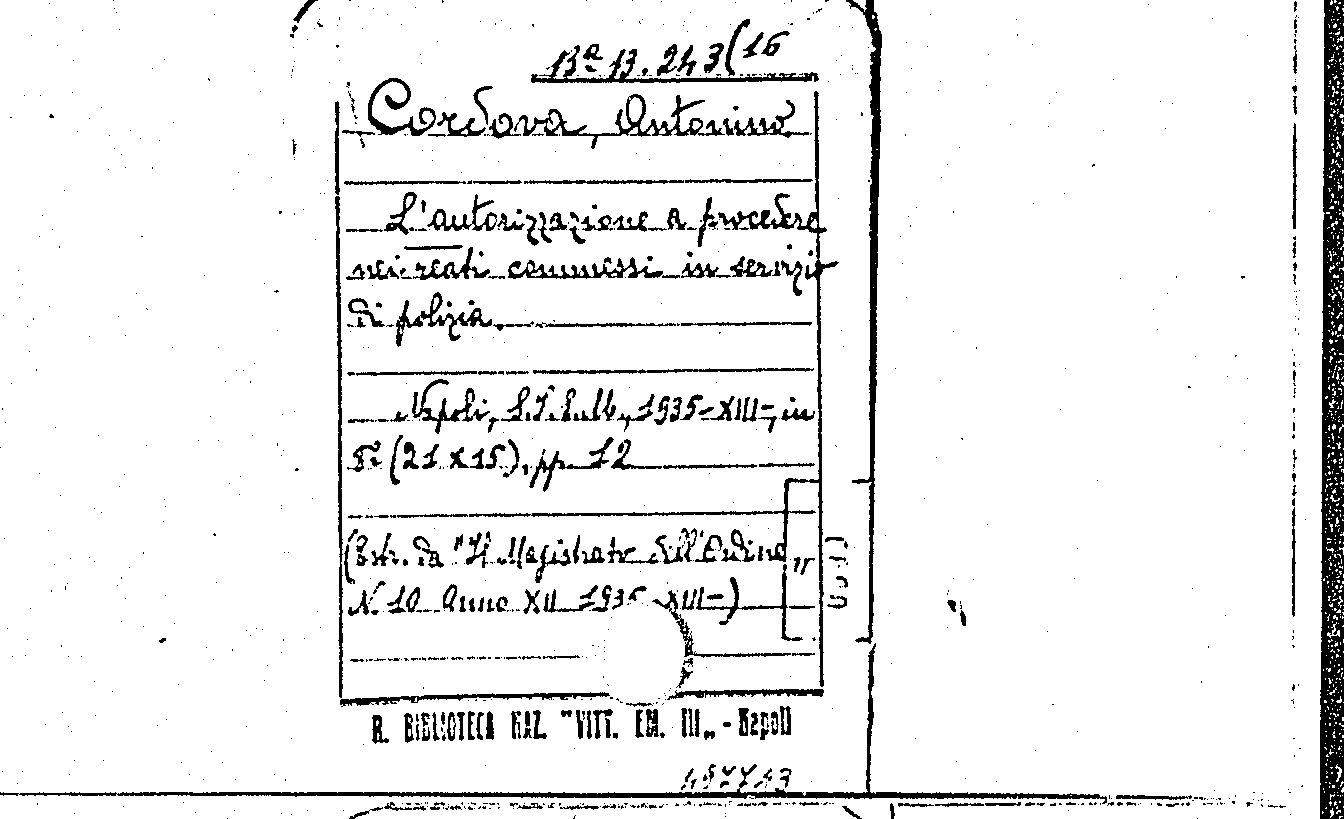 Bª B. 243(16
Cordova, Antonino
L'autorizzazione a procedere
nei reati commessi in servizio
di polizia.
Napoli, 1935-XIII-, in
8º (21 x 15), pp. 12
(Estr. da "Il Magistrato dell'Ordine"
N. 10 Anno XII 1935 XIII-)
R. BIBLIOTECA NAZ. "VITT. EM. III„ - Napoli